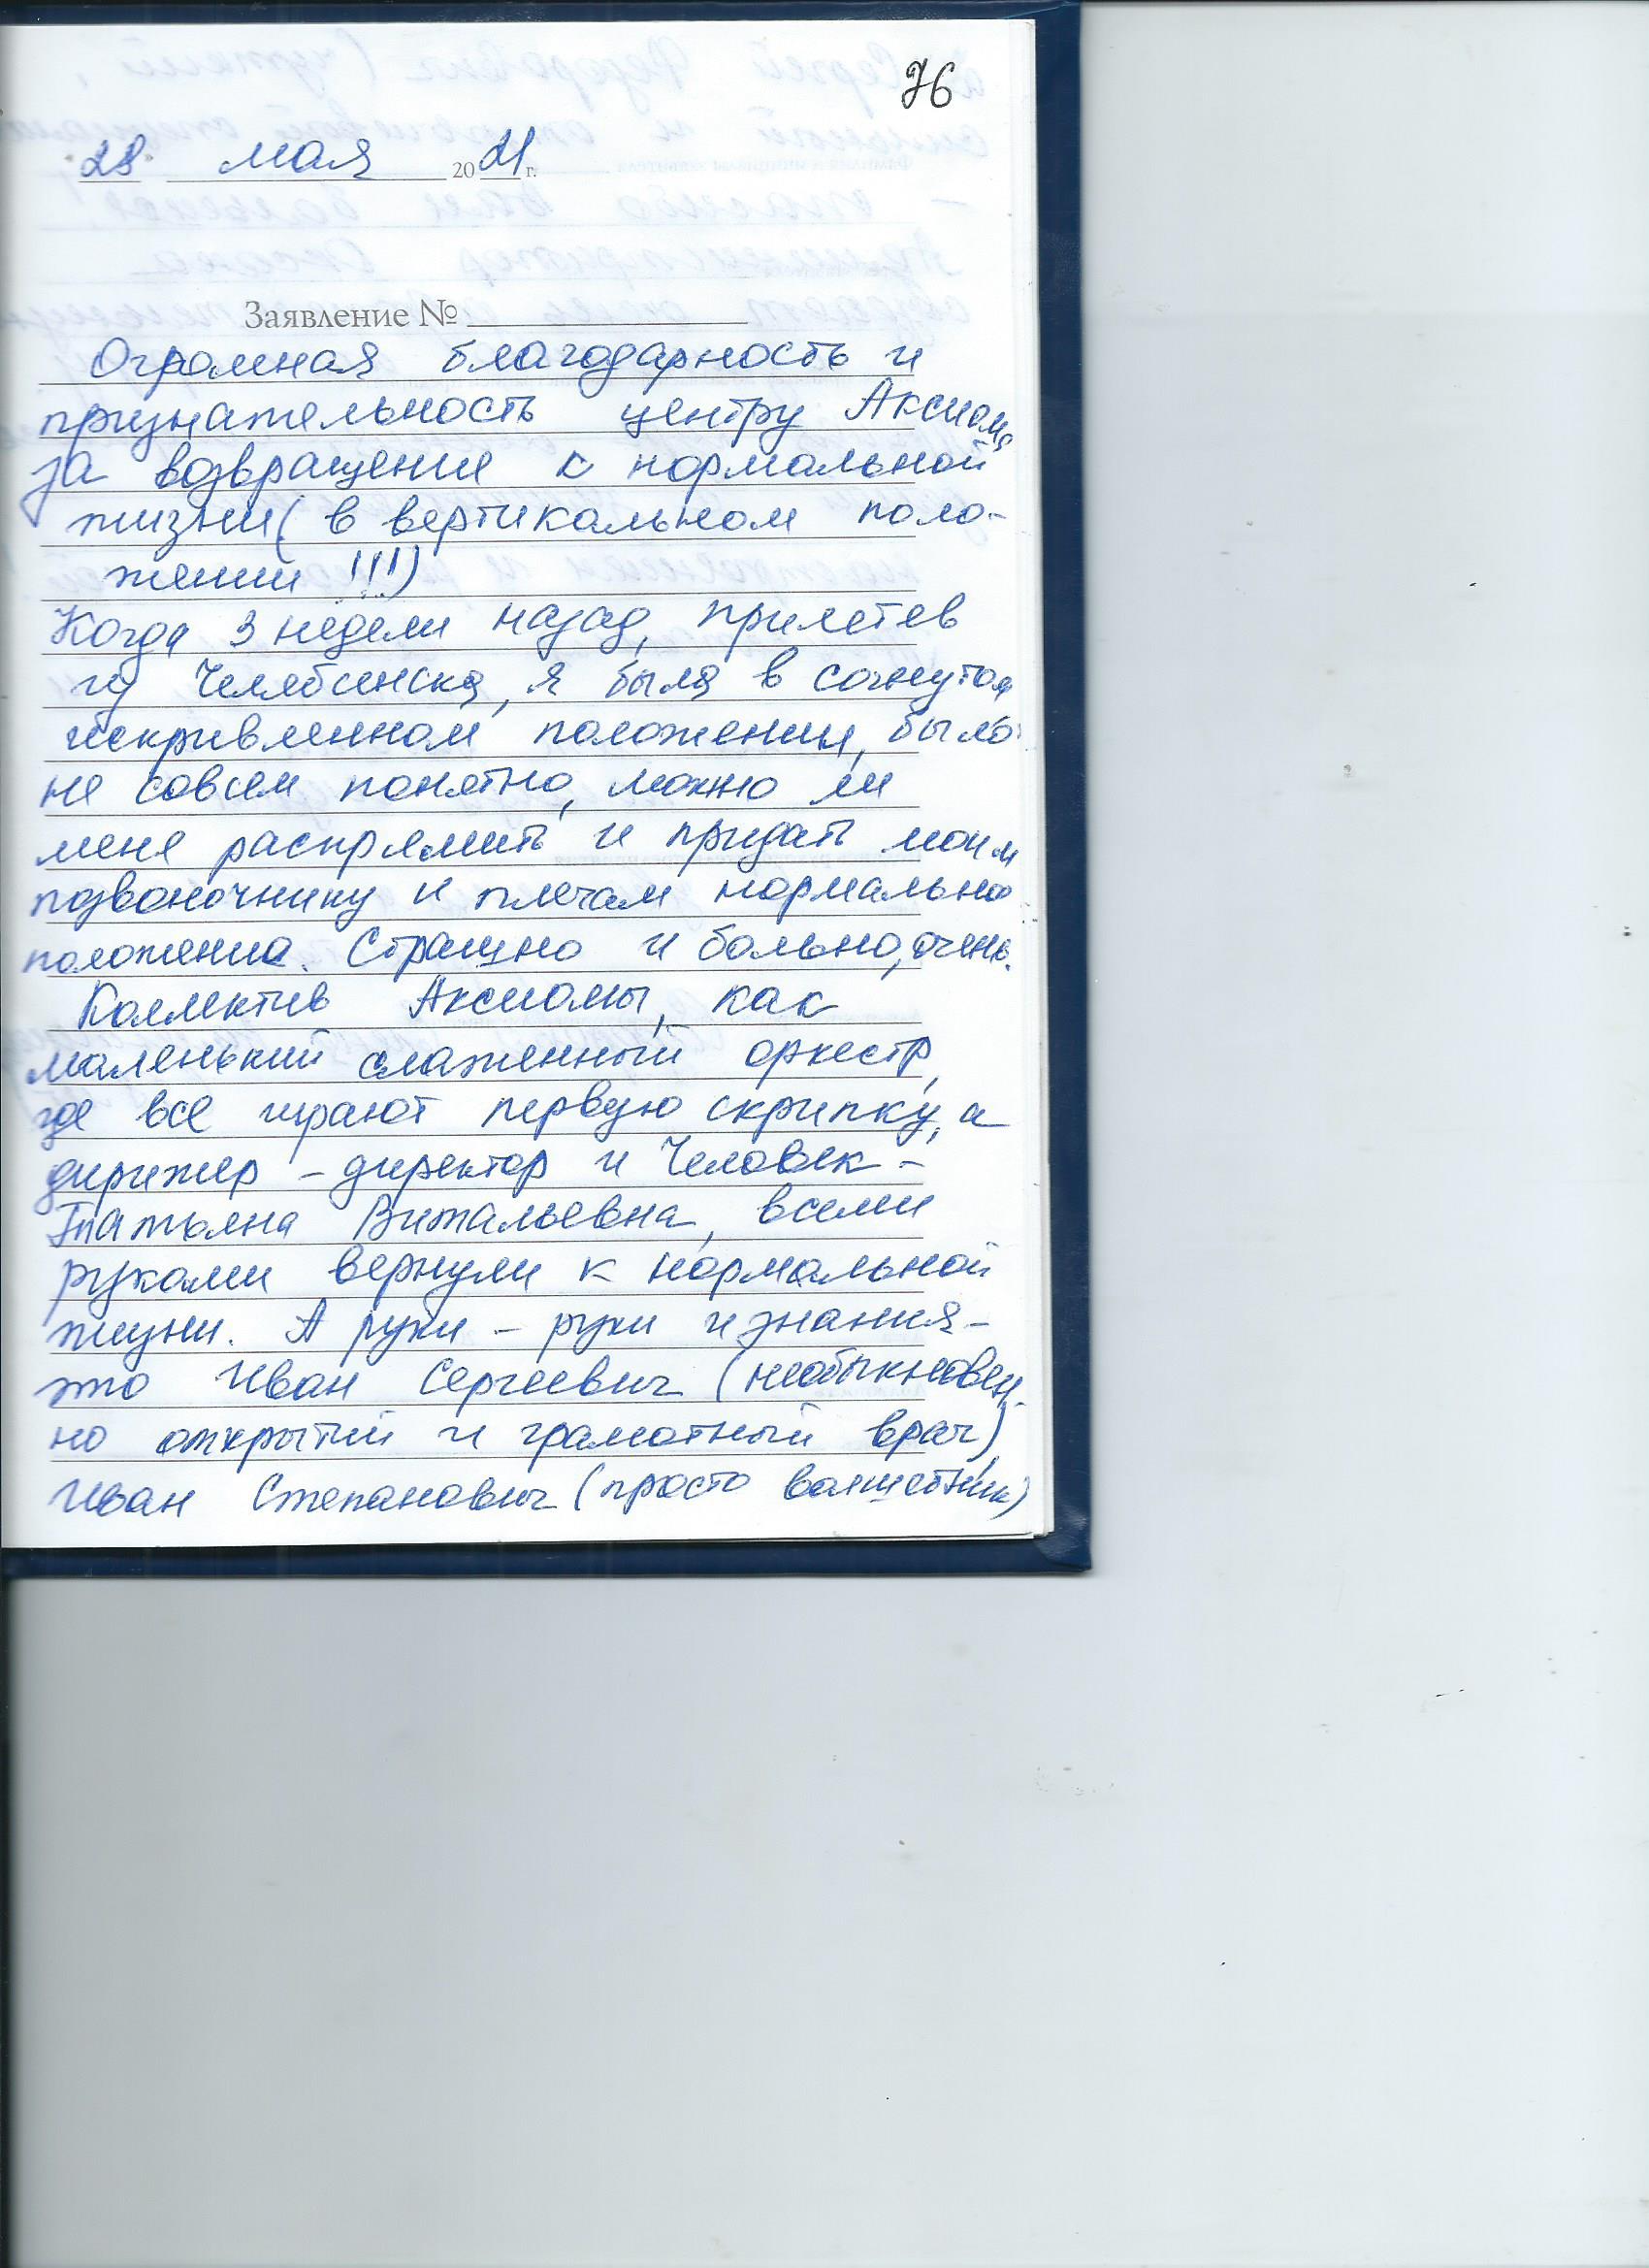 76
28 мая 2021 г.
Заявление №
Огромная благодарность и
признательность центру Аксиома
за возвращение к нормальной
жизни (в вертикальном поло-
жении !!!)
Когда 3 недели назад, прилетев
из Челябинска, я была в согнутом
искривленном положении, было
не совсем понятно, можно ли
меня распрямить и придать моим
позвоночнику и плечам нормально
положение. Страшно и больно, очень.
Коллектив Аксиомы, как
маленький слаженный оркестр,
где все играют первую скрипку, а
дирижер – директор и Человек –
Татьяна Витальевна, всеми
руками вернули к нормальной
жизни. А руки – руки и знания –
это Иван Сергеевич (необыкновен-
но открытый и грамотный врач),
Иван Степанович (просто волшебник)